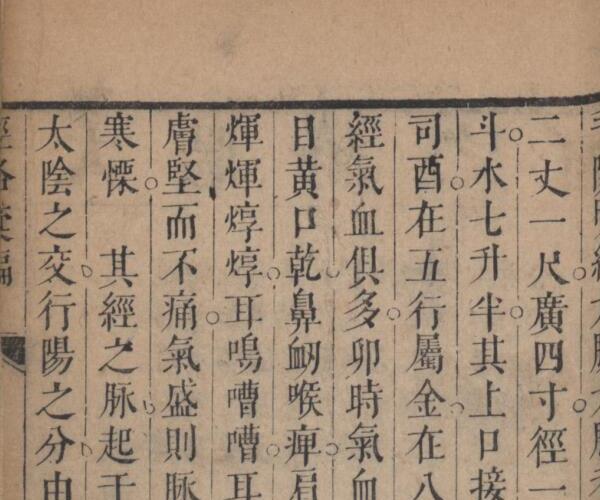 二丈一尺廣四寸徑一
斗水七升半其上口接
司酉在五行屬金在八
經氣血俱多卯時氣血
目黃口乾鼻衂喉痺肩
煇煇焞焞耳鳴嘈嘈耳
膚堅而不痛氣盛則脉
寒慄　其經之脉起于
太陰之交行陽之分由
經絡彙編